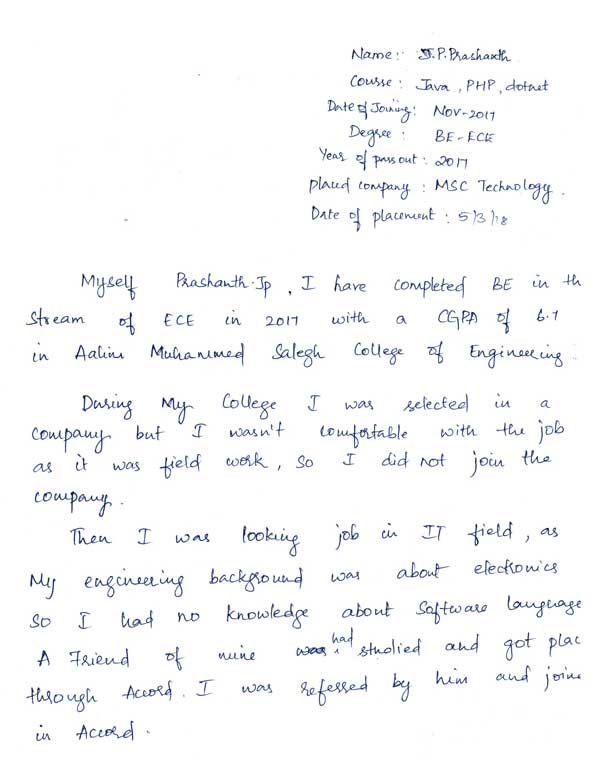 Name: J.P. Prashanth
Course: Java, PHP, dotnet
Date of Joining: Nov-2017
Degree: BE-ECE
Year of pass out: 2017
placed company: MSC Technology.
Date of placement: 5/3/18
Myself Prashanth.Jp, I have completed BE in th
Stream of ECE in 2017 with a CGPA of 6.1
in Aalim Muhammed Salegh College of Engineering.
During My College I was selected in a
company but I wasn't comfortable with the job
as it was field work, so I did not join the
company.
Then I was looking job in IT field, as
My engineering background was about electronics
so I had no knowledge about software language
A Friend of mine had studied and got plac
through Accord. I was referred by him and joine
in Accord.